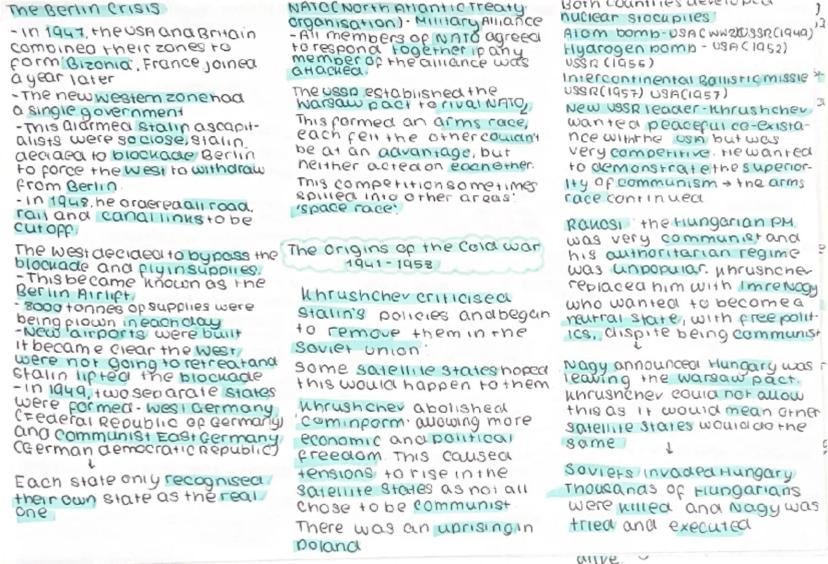 The Berlin Crisis
- In 1947, the USA and Britain
combined their zones to
form Bizonia, France joined
a year later
- The new western zone had
a single government
- This alarmed Stalin as capit-
alists were so close, Stalin
decided to blockade Berlin
to force the west to withdraw
from Berlin.
- In 1948, he ordered all road,
rail and canal links to be
cut off.
The West decided to bypass the
blockade and fly in supplies.
- This became known as the
Berlin Airlift.
- 8000 tonnes of supplies were
being flown in each day
- New airports were built
it became clear the West,
were not going to retreat and
Stalin lifted the blockade
- In 1949, two separate states
were formed - West Germany
(Federal Republic of Germany)
and communist East Germany
(German democratic Republic)
↓
Each state only recognised
their own state as the real
one
NATO (North Atlantic Treaty
organisation) - Military Alliance
- All members of NATO agreed
to respond together if any
member of the alliance was
attacked.
The USSR established the
Warsaw pact to rival NATO,
This formed an arms race,
each felt the other couldn't
be at an advantage, but
neither acted on eachother.
This competition sometimes
spilled into other areas:
'space race'.
The Origins of the Cold war
1941-1958
Khrushchev criticised
Stalin's policies and began
to remove them in the
Soviet union.
Some satellite states hoped
this would happen to them
Khrushchev abolished
'cominform' allowing more
economic and political
freedom. This caused
tensions to rise in the
satellite states as not all
chose to be communist
There was an uprising in
Poland
Both countries developed
nuclear stockpiles
Atom bomb - USA (WW2) USSR (1949)
Hydrogen bomb - USA (1952)
USSR (1955)
Intercontinental Ballistic missile
USSR (1957) USA (1957)
New USSR leader - Khrushchev
wanted peaceful co-exista-
nce with the USA but was
very competitive. He wanted
to demonstrate the superior-
ity of communism → the arms
race continued
Rakosi: the Hungarian PM
was very communist and
his authoritarian regime
was unpopular. Khrushcev
replaced him with Imre Nagy
who wanted to become a
neutral state, with free polit-
ics, dispite being communist
↓
Nagy announced Hungary was
leaving the warsaw pact.
Khrushcev could not allow
this as it would mean other
satellite states would do the
same
↓
Soviets invaded Hungary
Thousands of Hungarians
were killed and Nagy was
tried and executed
alive.